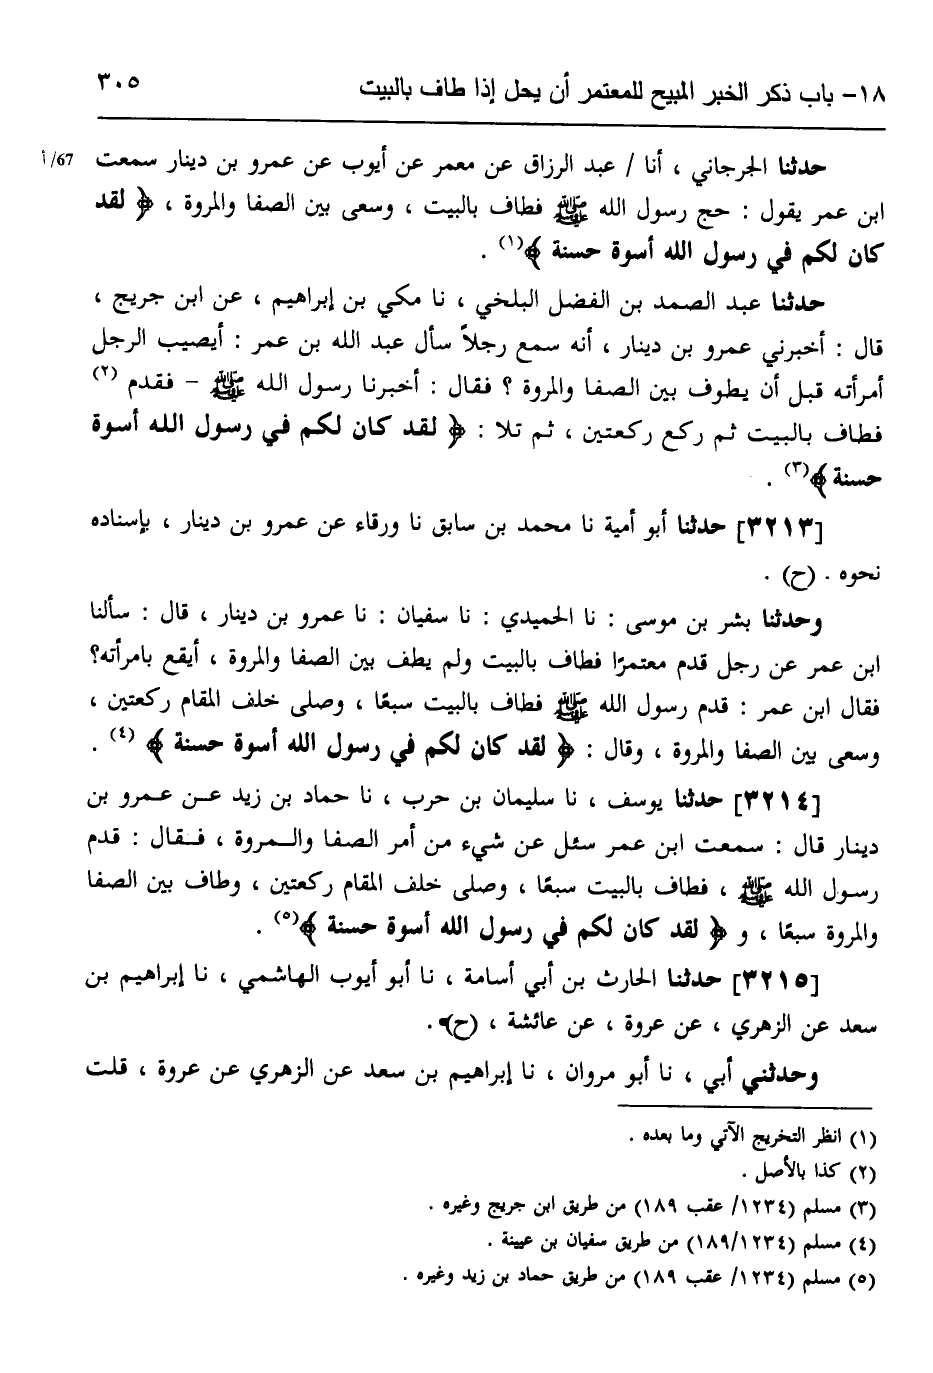 ١٨- باب ذكر الخبر المبيح للمعتمر أن يحل إذا طاف بالبيت ٣٠٥
حدثنا الجرجاني ، أنا / عبد الرزاق عن معمر عن أيوب عن عمرو بن دينار سمعت 67/أ
ابن عمر يقول : حج رسول الله ﷺ فطاف بالبيت ، وسعى بين الصفا والمروة ، ﴿ لقد
كان لكم في رسول الله أسوة حسنة ﴾(١) .
حدثنا عبد الصمد بن الفضل البلخي ، نا مكي بن إبراهيم ، عن ابن جريج ،
قال : أخبرني عمرو بن دينار ، أنه سمع رجلاً سأل عبد الله بن عمر : أيصيب الرجل
أمرأته قبل أن يطوف بين الصفا والمروة ؟ فقال : أخبرنا رسول الله ﷺ - فقدم (٢)
فطاف بالبيت ثم ركع ركعتين ، ثم تلا : ﴿ لقد كان لكم في رسول الله أسوة
حسنة ﴾(٣) .
[٣٢١٣] حدثنا أبو أمية نا محمد بن سابق نا ورقاء عن عمرو بن دينار ، بإسناده
نحوه . (ح) .
وحدثنا بشر بن موسى : نا الحميدي : نا سفيان : نا عمرو بن دينار ، قال : سألنا
ابن عمر عن رجل قدم معتمرًا فطاف بالبيت ولم يطف بين الصفا والمروة ، أيقع بامرأته؟
فقال ابن عمر : قدم رسول الله ﷺ فطاف بالبيت سبعًا ، وصلى خلف المقام ركعتين ،
وسعى بين الصفا والمروة ، وقال : ﴿ لقد كان لكم في رسول الله أسوة حسنة ﴾ (٤) .
[٣٢١٤] حدثنا يوسف ، نا سليمان بن حرب ، نا حماد بن زيد عن عمرو بن
دينار قال : سمعت ابن عمر سئل عن شيء من أمر الصفا والمروة ، فقال : قدم
رسول الله ﷺ ، فطاف بالبيت سبعًا ، وصلى خلف المقام ركعتين ، وطاف بين الصفا
والمروة سبعًا ، و ﴿ لقد كان لكم في رسول الله أسوة حسنة ﴾(٥) .
[٣٢١٥] حدثنا الحارث بن أبي أسامة ، نا أبو أيوب الهاشمي ، نا إبراهيم بن
سعد عن الزهري ، عن عروة ، عن عائشة ، (ح) .
وحدثني أبي ، نا أبو مروان ، نا إبراهيم بن سعد عن الزهري عن عروة ، قلت
(١) انظر التخريج الآتي وما بعده .
(٢) كذا بالأصل .
(٣) مسلم (١٢٣٤/ عقب ١٨٩) من طريق ابن جريج وغيره .
(٤) مسلم (١٨٩/١٢٣٤) من طريق سفيان بن عيينة .
(٥) مسلم (١٢٣٤/ عقب ١٨٩) من طريق حماد بن زيد وغيره .